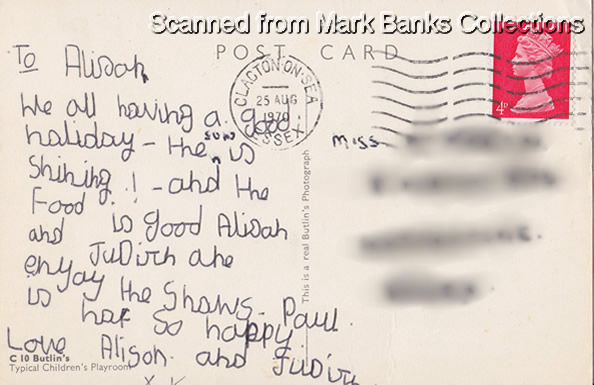 Scanned from Mark Banks Collections
POST CARD
CLACTON-ON-SEA
25 AUG
1970
ESSEX
4D
To Alisah
We all having a good
holiday - the sun is
Shining!! - and the
Food is good Alisah
and Judith are
enjoy the Shows. Paul.
is not so happy
Love Alison and Judith
x x
Miss
This is a real Butlin's Photograph
C 10 Butlin's
Typical Children's Playroom